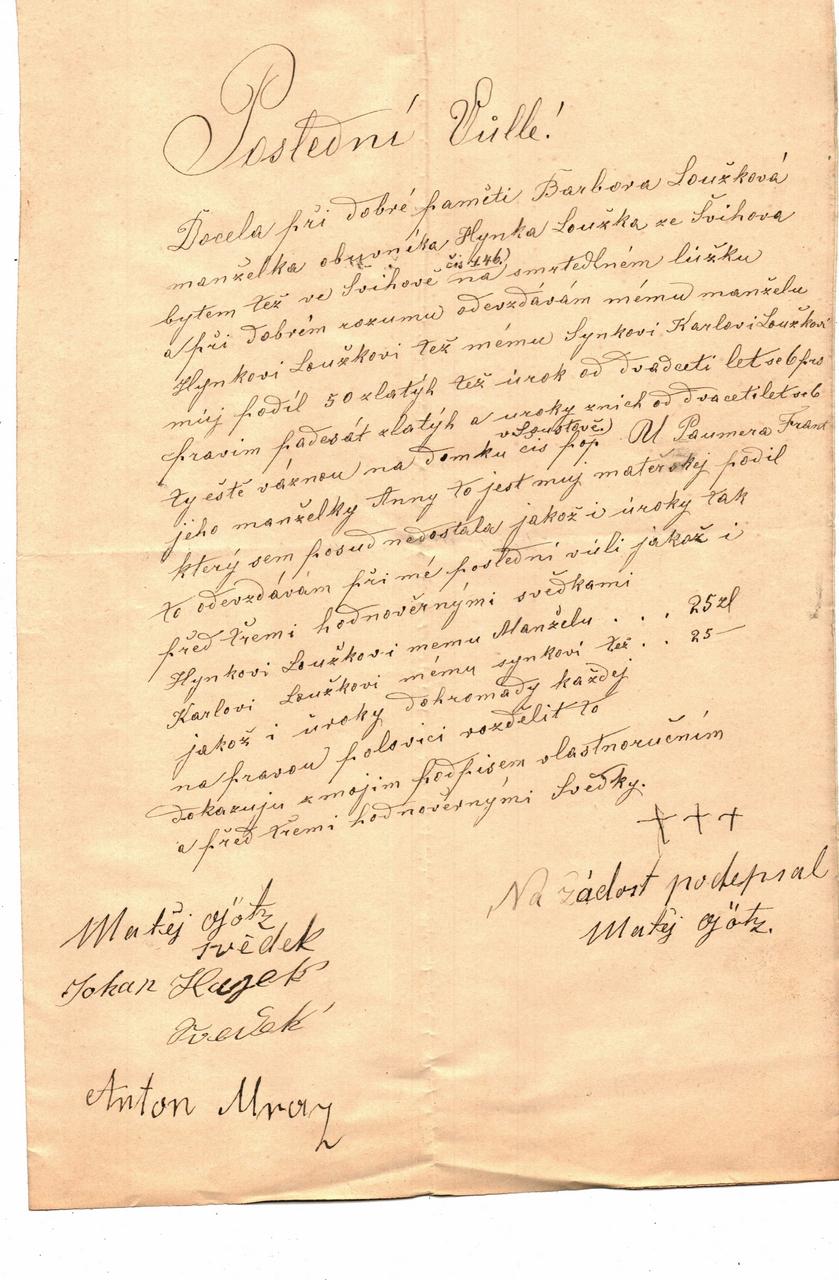 Poslední Vůlle!
Docela při dobré paměti Barbora Loužková
manželka obuvníka Hynka Loužka ze Švihova
bytem též ve Švihově čís 146) na smrtedlném lúžku
a při dobrém rozumu odevzdávám mému manželu
Hynkovi Loužkovi též mému Synkovi Karlovi Loužkovi
můj podíl 50 zlatýh též úrok od dvadceti let
pravim padesát zlatýh a uroky znich od dvaceti let
ty eště váznou na domku čís pop U Paumera Frant
jeho manželky Anny to jest muj mateřskej podil
který sem posud nedostala jakož i úroky tak
to odevzdávám při mé poslední vúli jakož i
před třemi hodnověrnými svědkami
Hynkovi Loužkovi memu Manželu . . . 25 zl
Karlovi Loužkovi mému synkovi též . . 25 —
jakož i úroky dohromady každej
na pravou polovici rozdělit to
dokazuju z mojim podpisem vlastnoručním
a před třemi hodnověrnými Svědky.
+ + +
Na žádost podepsal
Matěj Götz.
Matěj Götz
svědek
Johan Hajek
Svedek
Anton Mraz